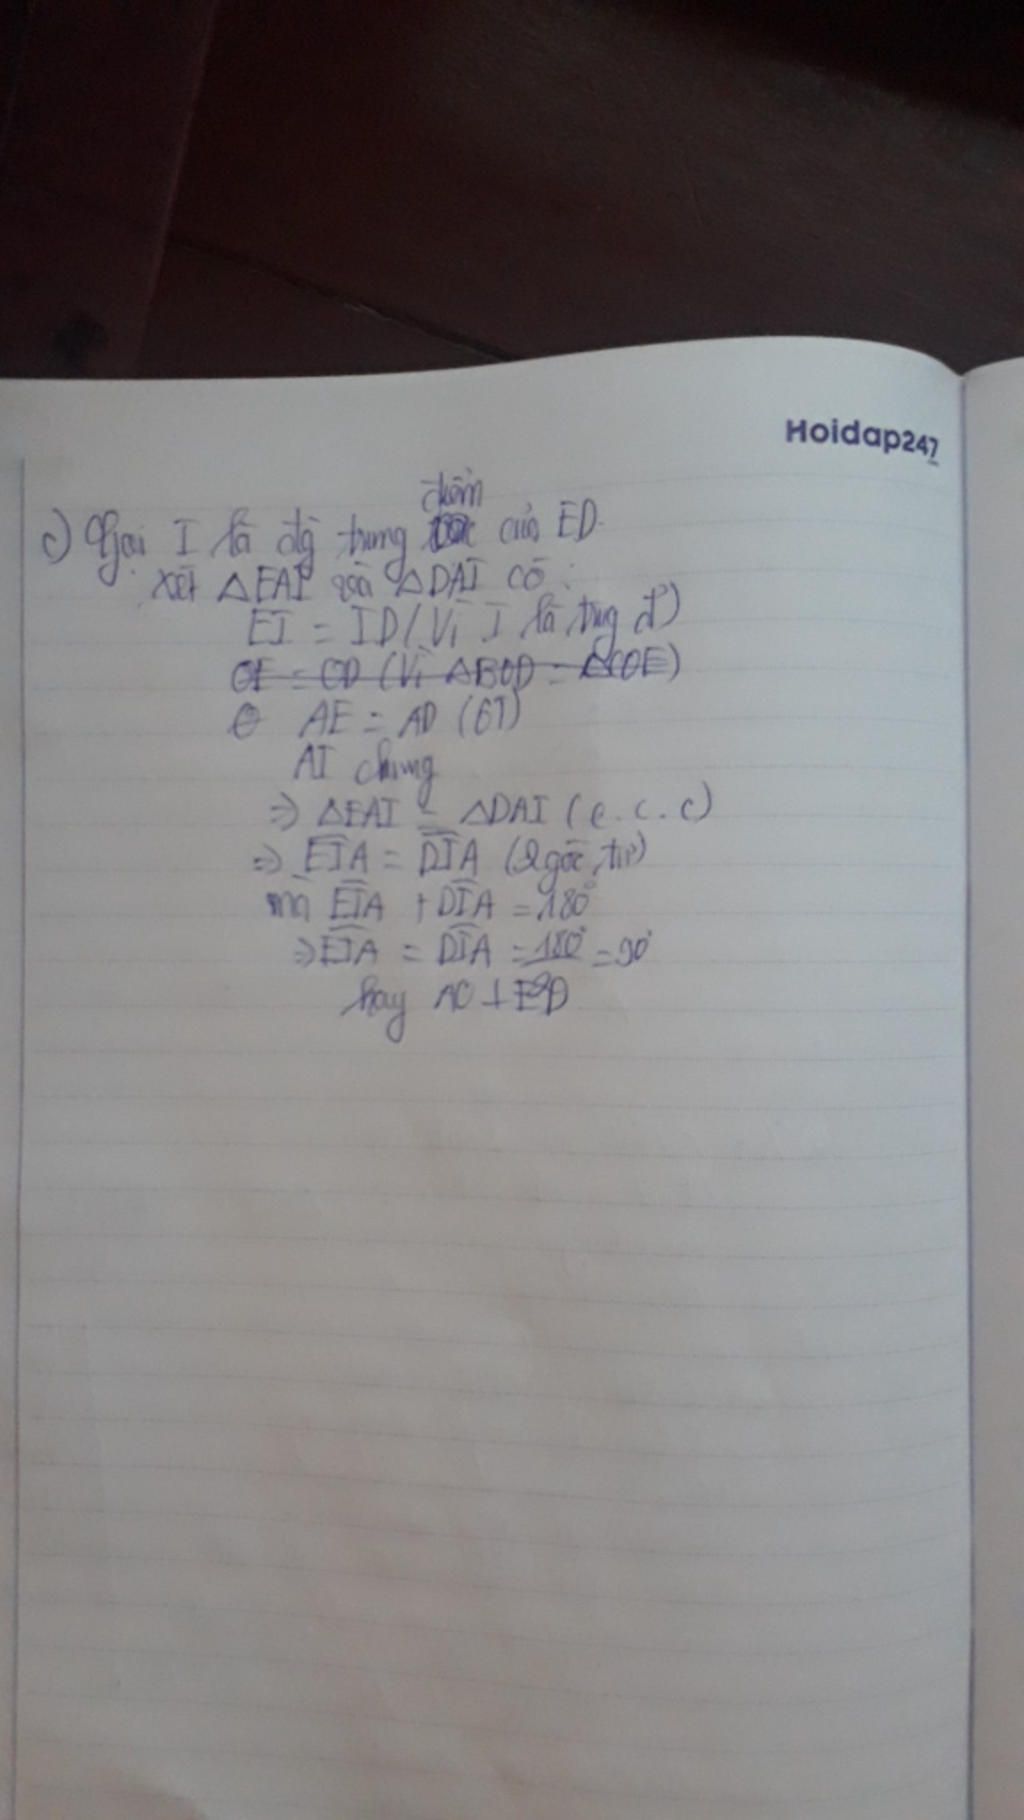 Hoidap247
điểm
c) Gọi I là trung của ED
Xét △EAI và △DAI có :
EI = ID (Vì I là trug đ')
OE = OD (Vì △BOD = △COE)
AE = AD (GT)
AI chung
=> △EAI = △DAI (c.c.c)
=> EIA = DIA (2 góc tư)
mà EIA + DIA = 180°
=> EIA = DIA = 180° = 90°
2
hay AO ⊥ ED